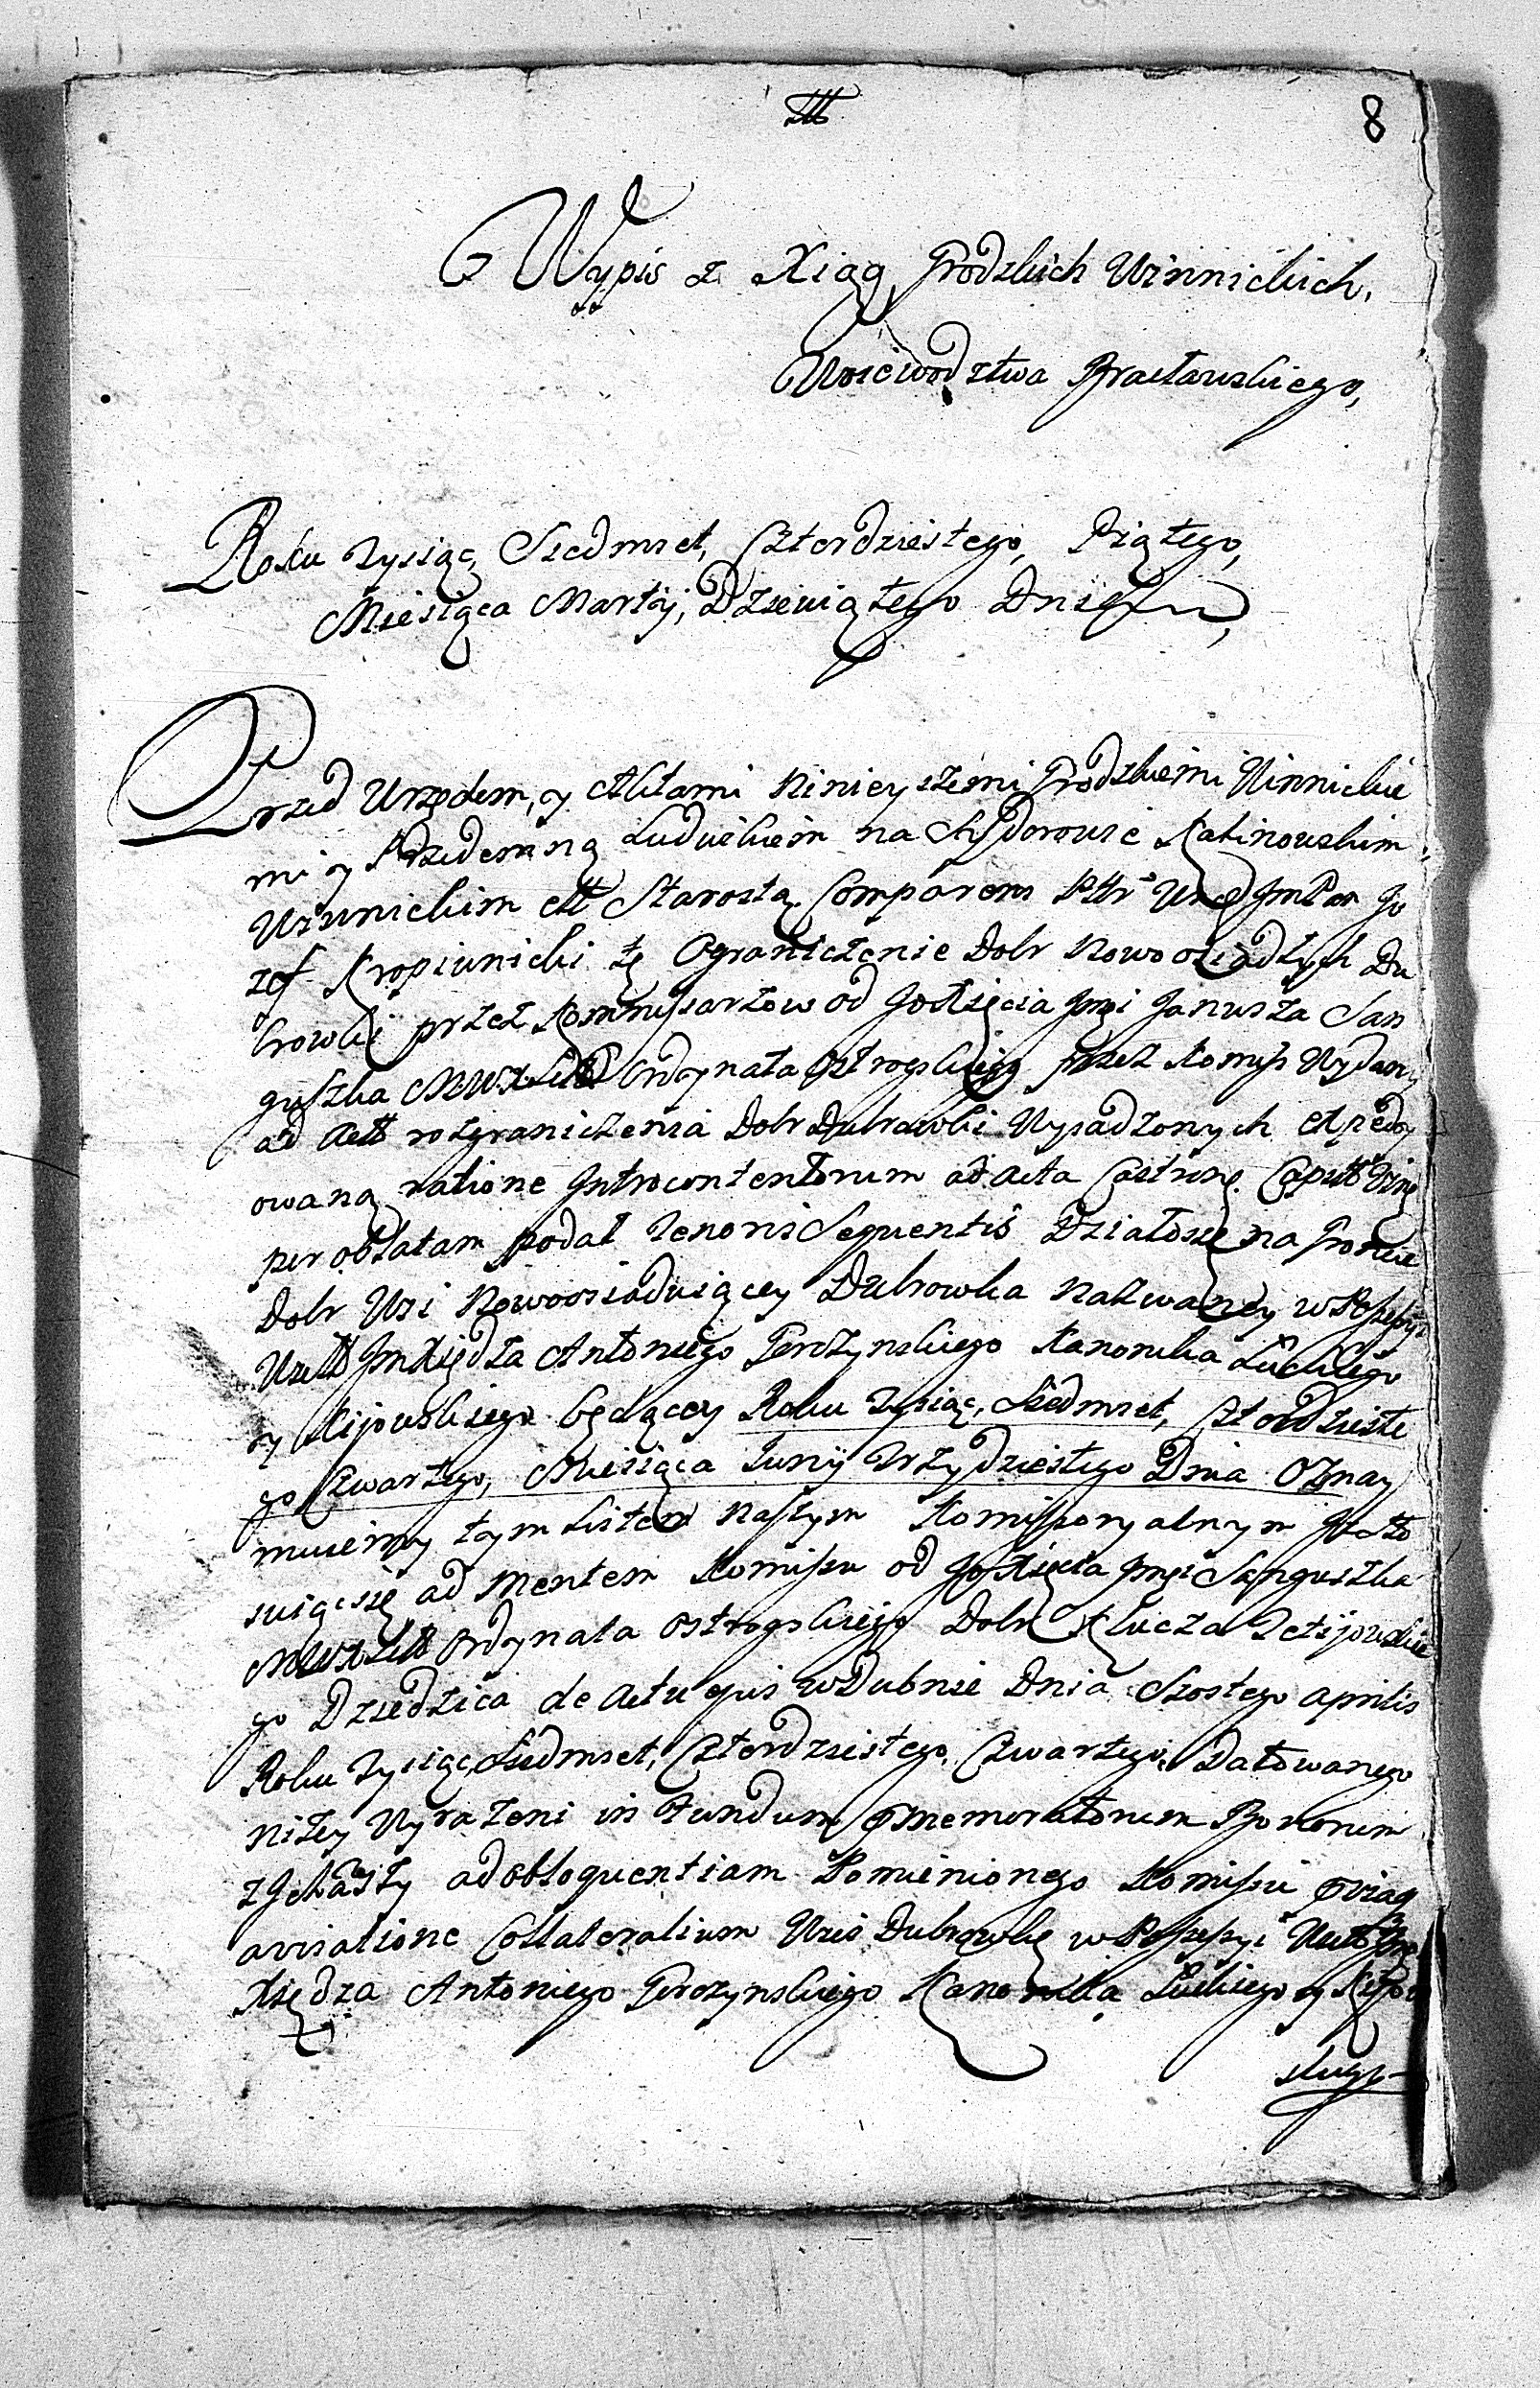 8
Wypis z Xiąg Grodzkich Winnickich,
Woiewodztwa Bracławskiego,
Roku Tysiąc, Siedmset, Czterdziestego, Piątego,
Miesiąca Martij, Dziewiątego Dnia,
Przed Urzędem, y Aktami Ninieyszemi Grodzkiemi Winnickie
mi y Przedemną Ludwikiem na Sydorowie Kalinowskim
Winnickim Starostą Comparens Jo
zef Kropiwnicki tę Ograniczenie Dobr Nowoosiadłych Du
browki przez Kommissarzow od Jo Xięcia Jmci Janusza San
guszka Ordynata Ostrogskiego przez Komiss Wydany
ad rozgraniczenia Dobr Dubrowki Wysadzonych Expedy
owaną ratione Introcontentorum ad Acta
per oblatam podał Tenoris Sequentis Działosię na Groncie
Dobr Wsi Nowoosiadaiącey Dubrowka Nazwaney w Possessyi
Xiędza Antoniego Gerozynskiego Kanonika Łuckiego
y Kijowskiego będącey Roku Tysiąc, Siedmset, Czterdzieste
go Czwartego, Miesiąca Junij Trzydziestego Dnia Oznay
muiemy tym Listem Naszym Komissoryalnym Iż Sto
suiąc się ad Mentem Komissu od Jo Xięcia Jmci Sanguszka
Ordynata Ostrogskiego Dobr Klucza Tetijowskie
go Dziedzica de Actu ejus w Dubnie Dnia Szostego Aprilis
Roku Tysiąc, Siedmset, Czterdziestego, Czwartego, Datowanego
Niżey Wyrażeni in Fundum Bonorum
zJechaszy ad obloquentiam Pomienionego Komissu
avisatione Collateralium Wsi Dubrowki w Possessyi
Xiędza Antoniego Gerozynskiego Kanonika Łuckiego y Kijow
skiego